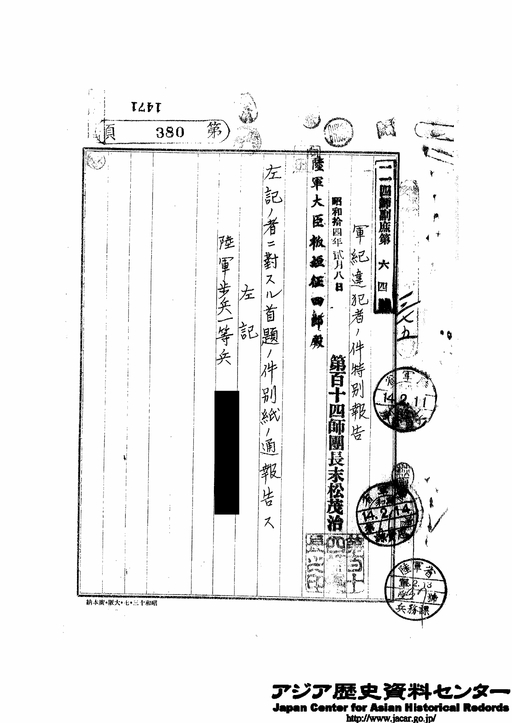 1471
第 380 頁
一一四師副庶第六四號
軍紀違犯者ノ件特別報告
昭和拾四年貳月八日
第百十四師團長末松茂治
陸軍大臣板垣征四郎殿
左記ノ者ニ對スル首題ノ件別紙ノ通報告ス
左記
陸軍步兵一等兵
14.2.11
14.2.14
陸軍省
兵務課
昭和十三・七・大阪・廣本納
アジア歴史資料センター
Japan Center for Asian Historical Records
http://www.jacar.go.jp/